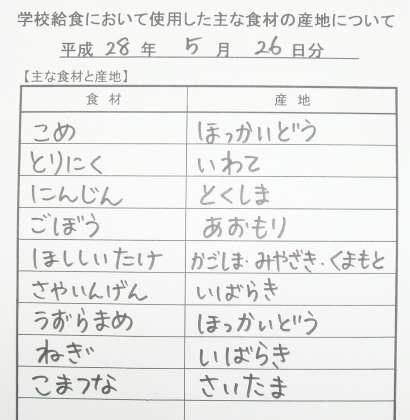 学校給食において使用した主な食材の産地について
平成 28 年 5 月 26 日分
【主な食材と産地】
食材 産地
こめ ほっかいどう
とりにく いわて
にんじん とくしま
ごぼう あおもり
ほししいたけ かごしま・みやざき・くまもと
さやいんげん いばらき
うずらまめ ほっかいどう
ねぎ いばらき
こまつな さいたま